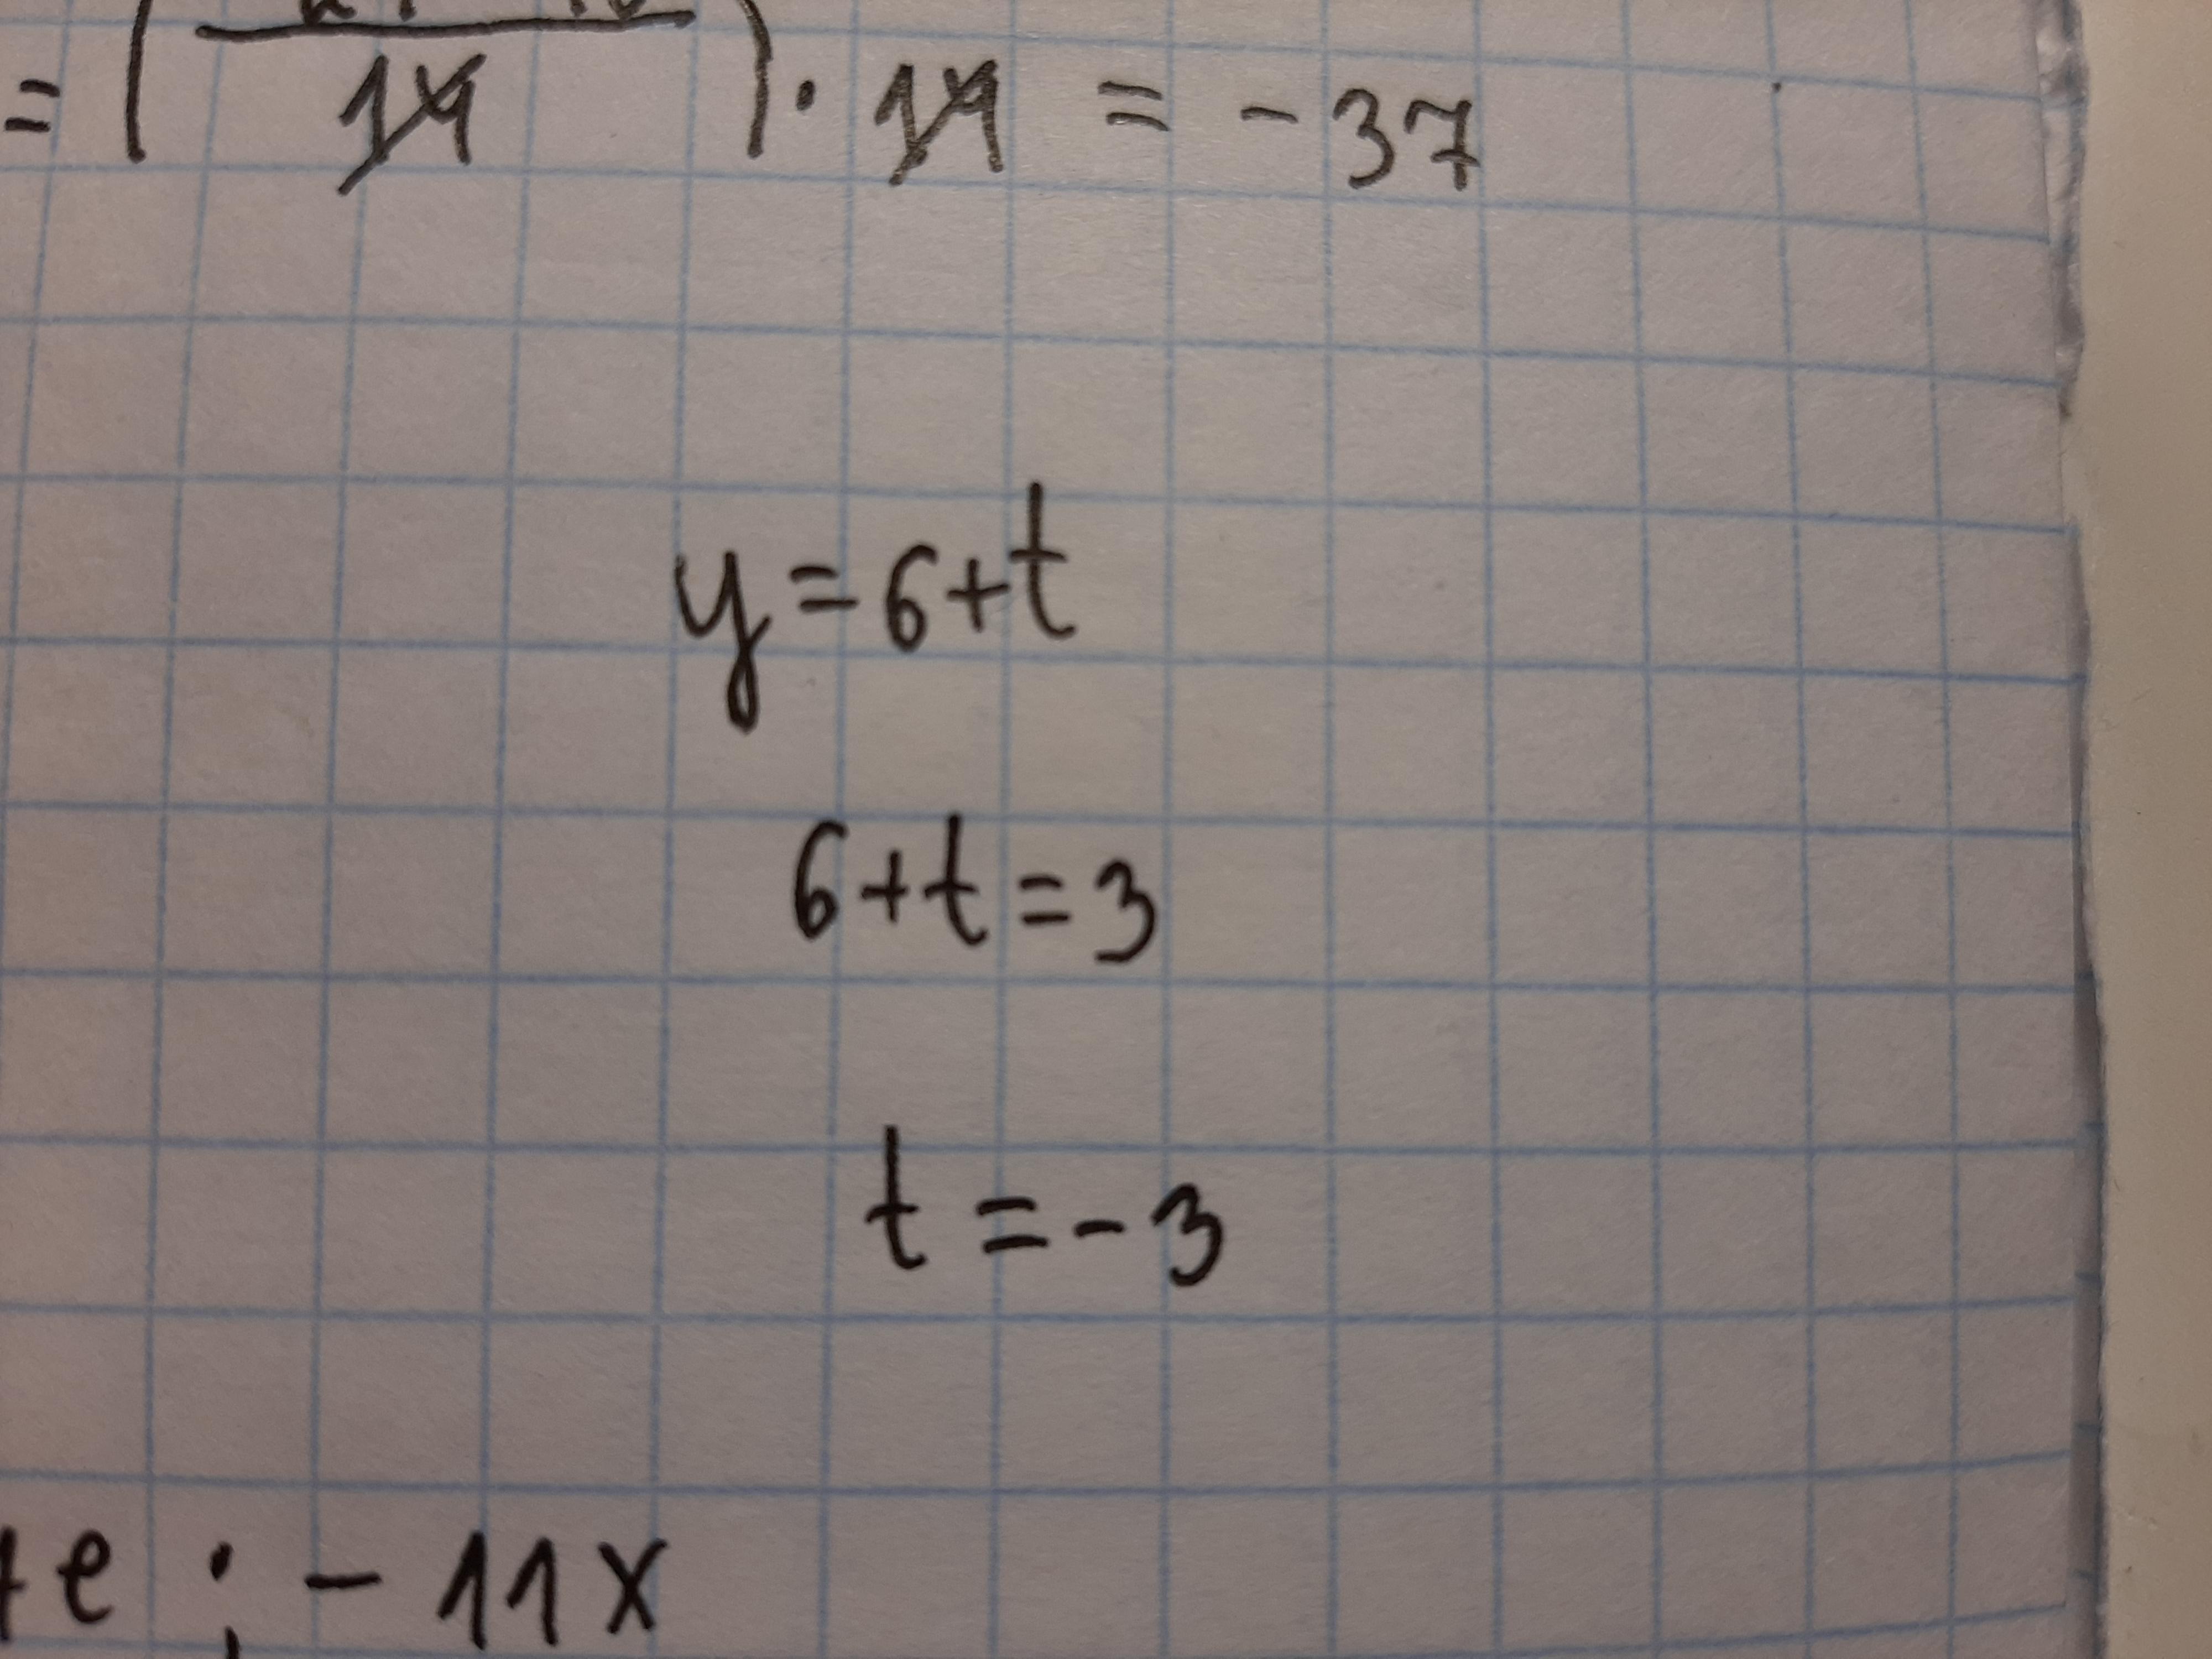 = ( / 14 ) · 14 = -37
y = 6+t
6+t = 3
t = -3
e ; - 11x